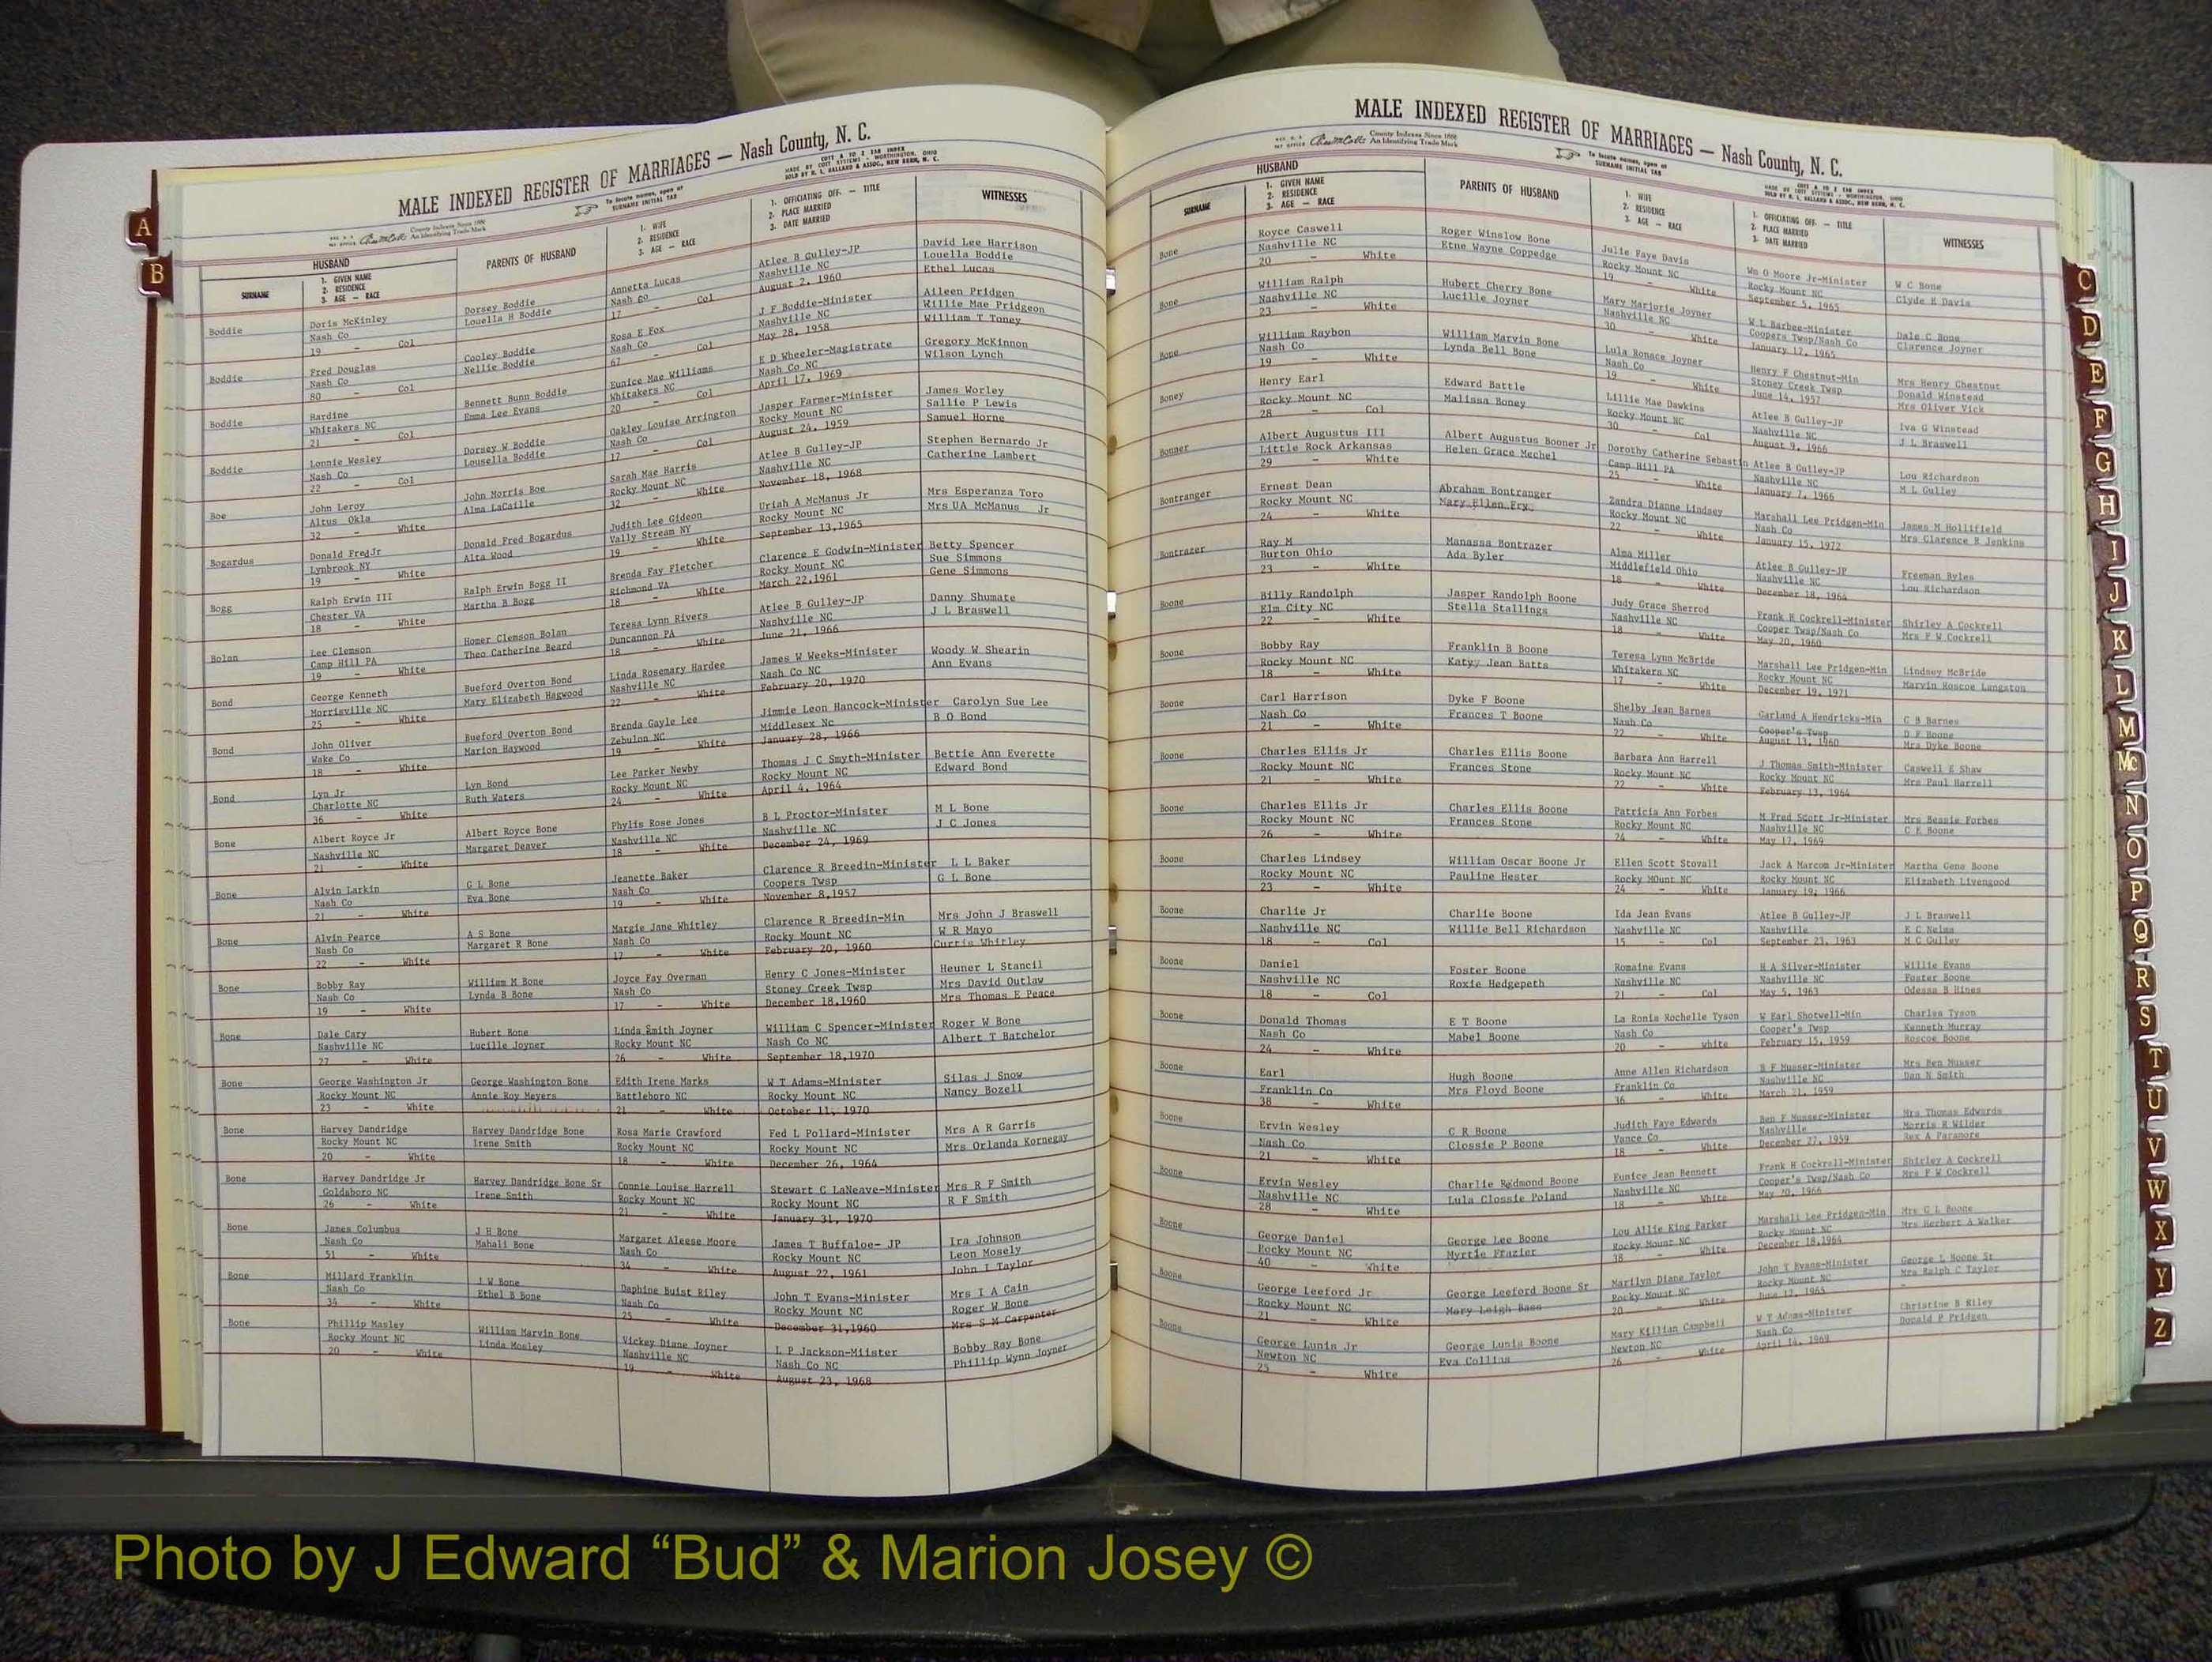 MALE INDEXED REGISTER OF MARRIAGES — Nash County, N. C.
County Indexes Since 1888
An Identifying Trade Mark
To locate names, open at
SURNAME INITIAL TAB
COTT A TO Z TAB INDEX
MADE BY COTT SYSTEMS - WORTHINGTON, OHIO
SOLD BY R. L. BALLARD & ASSOC., NEW BERN, N. C.
HUSBAND
SURNAME
1. GIVEN NAME
2. RESIDENCE
3. AGE — RACE
PARENTS OF HUSBAND
1. WIFE
2. RESIDENCE
3. AGE — RACE
1. OFFICIATING OFF. — TITLE
2. PLACE MARRIED
3. DATE MARRIED
WITNESSES
Boddie Doris McKinley Dorsey Boddie Annetta Lucas Atlee B Gulley-JP David Lee Harrison
Nash Co Louella H Boddie Nash Co Nashville NC Louella Boddie
19 - Col 17 - Col August 2, 1960 Ethel Lucas
Boddie Fred Douglas Cooley Boddie Rosa E Fox J F Boddie-Minister Aileen Pridgen
Nash Co Nellie Boddie Nash Co Nashville NC Willie Mae Pridgeon
80 - Col 67 - Col May 28, 1958 William T Toney
Boddie Hardine Bennett Bunn Boddie Eunice Mae Williams E D Wheeler-Magistrate Gregory McKinnon
Whitakers NC Emma Lee Evans Whitakers NC Nash Co NC Wilson Lynch
21 - Col 20 - Col April 17, 1969
Boddie Lonnie Wesley Dorsey W Boddie Oakley Louise Arrington Jasper Farmer-Minister James Worley
Nash Co Lousella Boddie Nash Co Rocky Mount NC Sallie P Lewis
22 - Col 17 - Col August 24, 1959 Samuel Horne
Boe John Leroy John Morris Boe Sarah Mae Harris Atlee B Gulley-JP Stephen Bernardo Jr
Altus Okla Alma LaCaille Rocky Mount NC Nashville NC Catherine Lambert
32 - White 32 - White November 18, 1968
Bogardus Donald Fred Jr Donald Fred Bogardus Judith Lee Gideon Uriah A McManus Jr Mrs Esperanza Toro
Lynbrook NY Alta Wood Vally Stream NY Rocky Mount NC Mrs UA McManus Jr
19 - White 19 - White September 13,1965
Bogg Ralph Erwin III Ralph Erwin Bogg II Brenda Fay Fletcher Clarence E Godwin-Minister Betty Spencer
Chester VA Martha B Bogg Richmond VA Rocky Mount NC Sue Simmons
18 - White 18 - White March 22,1961 Gene Simmons
Bolan Lee Clemson Homer Clemson Bolan Teresa Lynn Rivers Atlee B Gulley-JP Danny Shumate
Camp Hill PA Theo Catherine Beard Duncannon PA Nashville NC J L Braswell
19 - White 18 - White June 21, 1966
Bond George Kenneth Bueford Overton Bond Linda Rosemary Hardee James W Weeks-Minister Woody W Shearin
Morrisville NC Mary Elizabeth Hagwood Nashville NC Nash Co NC Ann Evans
25 - White 22 - White February 20, 1970
Bond John Oliver Bueford Overton Bond Brenda Gayle Lee Jimmie Leon Hancock-Minister Carolyn Sue Lee
Wake Co Marion Haywood Zebulon NC Middlesex Nc B O Bond
18 - White 19 - White January 28, 1966
Bond Lyn Jr Lyn Bond Lee Parker Newby Thomas J C Smyth-Minister Bettie Ann Everette
Charlotte NC Ruth Waters Rocky Mount NC Rocky Mount NC Edward Bond
36 - White 24 - White April 4, 1964
Bone Albert Royce Jr Albert Royce Bone Phylis Rose Jones B L Proctor-Minister M L Bone
Nashville NC Margaret Deaver Nashville NC Nashville NC J C Jones
21 - White 18 - White December 24, 1969
Bone Alvin Larkin G L Bone Jeanette Baker Clarence R Breedin-Minister L L Baker
Nash Co Eva Bone Nash Co Coopers Twsp G L Bone
21 - White 19 - White November 8,1957
Bone Alvin Pearce A S Bone Margie Jane Whitley Clarence R Breedin-Min Mrs John J Braswell
Nash Co Margaret R Bone Nash Co Rocky Mount NC W R Mayo
22 - White 17 - White February 20, 1960 Curtis Whitley
Bone Bobby Ray William M Bone Joyce Fay Overman Henry C Jones-Minister Heuner L Stancil
Nash Co Lynda B Bone Nash Co Stoney Creek Twsp Mrs David Outlaw
19 - White 17 - White December 18,1960 Mrs Thomas E Peace
Bone Dale Cary Hubert Bone Linda Smith Joyner William C Spencer-Minister Roger W Bone
Nashville NC Lucille Joyner Rocky Mount NC Nash Co NC Albert T Batchelor
27 - White 26 - White September 18,1970
Bone George Washington Jr George Washington Bone Edith Irene Marks W T Adams-Minister Silas J Snow
Rocky Mount NC Annie Roy Meyers Battleboro NC Rocky Mount NC Nancy Bozell
23 - White 21 - White October 11, 1970
Bone Harvey Dandridge Harvey Dandridge Bone Rosa Marie Crawford Fed L Pollard-Minister Mrs A R Garris
Rocky Mount NC Irene Smith Rocky Mount NC Rocky Mount NC Mrs Orlanda Kornegay
20 - White 18 - White December 26, 1964
Bone Harvey Dandridge Jr Harvey Dandridge Bone Sr Connie Louise Harrell Stewart C LaNeave-Minister Mrs R F Smith
Goldsboro NC Irene Smith Rocky Mount NC Rocky Mount NC R F Smith
26 - White 21 - White January 31, 1970
Bone James Columbus J H Bone Margaret Aleese Moore James T Buffaloe- JP Ira Johnson
Nash Co Mahali Bone Nash Co Rocky Mount NC Leon Mosely
51 - White 34 - White August 22, 1961 John I Taylor
Bone Millard Franklin J W Bone Daphine Buist Riley John T Evans-Minister Mrs I A Cain
Nash Co Ethel B Bone Nash Co Rocky Mount NC Roger W Bone
34 - White 25 - White December 31,1960 Mrs S M Carpenter
Bone Phillip Masley William Marvin Bone Vickey Diane Joyner L P Jackson-Miister Bobby Ray Bone
Rocky Mount NC Linda Mosley Nashville NC Nash Co NC Phillip Wynn Joyner
20 - White 19 - White August 23, 1968
MALE INDEXED REGISTER OF MARRIAGES — Nash County, N. C.
County Indexes Since 1888
An Identifying Trade Mark
To locate names, open at
SURNAME INITIAL TAB
COTT A TO Z TAB INDEX
MADE BY COTT SYSTEMS - WORTHINGTON, OHIO
SOLD BY R. L. BALLARD & ASSOC., NEW BERN, N. C.
HUSBAND
SURNAME
1. GIVEN NAME
2. RESIDENCE
3. AGE — RACE
PARENTS OF HUSBAND
1. WIFE
2. RESIDENCE
3. AGE — RACE
1. OFFICIATING OFF. — TITLE
2. PLACE MARRIED
3. DATE MARRIED
WITNESSES
Bone Royce Caswell Roger Winslow Bone Julie Faye Davis Wm O Moore Jr-Minister W C Bone
Nashville NC Etne Wayne Coppedge Rocky Mount NC Rocky Mount NC Clyde E Davis
20 - White 19 - White September 5, 1965
Bone William Ralph Hubert Cherry Bone Mary Marjorie Joyner W L Barbee-Minister Dale C Bone
Nashville NC Lucille Joyner Nashville NC Coopers Twsp/Nash Co Clarence Joyner
23 - White 30 - White January 12, 1965
Bone William Raybon William Marvin Bone Lula Ronace Joyner Henry F Chestnut-Min Mrs Henry Chestnut
Nash Co Lynda Bell Bone Nash Co Stoney Creek Twsp Donald Winstead
19 - White 19 - White June 14, 1957 Mrs Oliver Vick
Boney Henry Earl Edward Battle Lillie Mae Dawkins Atlee B Gulley-JP Iva G Winstead
Rocky Mount NC Malissa Boney Rocky Mount NC Nashville NC J L Braswell
28 - Col 30 - Col August 9, 1966
Bonner Albert Augustus III Albert Augustus Booner Jr Dorothy Catherine Sebastin Atlee B Gulley-JP Lou Richardson
Little Rock Arkansas Helen Grace Mechel Camp Hill PA Nashville NC M L Gulley
29 - White 25 - White January 7, 1966
Bontranger Ernest Dean Abraham Bontranger Zandra Dianne Lindsey Marshall Lee Pridgen-Min James M Hollifield
Rocky Mount NC Mary Ellen Fry Rocky Mount NC Nash Co Mrs Clarence R Jenkins
24 - White 22 - White January 15, 1972
Bontrazer Ray M Manassa Bontrazer Alma Miller Atlee B Gulley-JP Freeman Byles
Burton Ohio Ada Byler Middlefield Ohio Nashville NC Lou Richardson
23 - White 18 - White December 18, 1964
Boone Billy Randolph Jasper Randolph Boone Judy Grace Sherrod Frank H Cockrell-Minister Shirley A Cockrell
Elm City NC Stella Stallings Nashville NC Cooper Twsp/Nash Co Mrs F W Cockrell
22 - White 18 - White May 20, 1960
Boone Bobby Ray Franklin B Boone Teresa Lynn McBride Marshall Lee Pridgen-Min Lindsey McBride
Rocky Mount NC Katy Jean Batts Whitakers NC Rocky Mount NC Marvin Roscoe Langston
18 - White 17 - White December 19, 1971
Boone Carl Harrison Dyke F Boone Shelby Jean Barnes Garland A Hendricks-Min C B Barnes
Nash Co Frances T Boone Nash Co Cooper's Twsp D F Boone
21 - White 22 - White August 13, 1960 Mrs Dyke Boone
Boone Charles Ellis Jr Charles Ellis Boone Barbara Ann Harrell J Thomas Smith-Minister Caswell E Shaw
Rocky Mount NC Frances Stone Rocky Mount NC Rocky Mount NC Mrs Paul Harrell
21 - White 22 - White February 13, 1964
Boone Charles Ellis Jr Charles Ellis Boone Patricia Ann Forbes M Fred Scott Jr-Minister Mrs Bessie Forbes
Rocky Mount NC Frances Stone Rocky Mount NC Nashville NC C E Boone
26 - White 24 - White May 17, 1969
Boone Charles Lindsey William Oscar Boone Jr Ellen Scott Stovall Jack A Marcom Jr-Minister Martha Gene Boone
Rocky Mount NC Pauline Hester Rocky MOunt NC Rocky Mount NC Elizabeth Livengood
23 - White 24 - White January 19, 1966
Boone Charlie Jr Charlie Boone Ida Jean Evans Atlee B Gulley-JP J L Braswell
Nashville NC Willie Bell Richardson Nashville NC Nashville E C Nelms
18 - Col 15 - Col September 23, 1963 M C Gulley
Boone Daniel Foster Boone Romaine Evans H A Silver-Minister Willie Evans
Nashville NC Roxie Hedgepeth Nashville NC Nashville NC Foster Boone
18 - Col 21 - Col May 5, 1963 Odessa B Hines
Boone Donald Thomas E T Boone La Ronia Rochelle Tyson W Earl Shotwell-Min Charles Tyson
Nash Co Mabel Boone Nash Co Cooper's Twsp Kenneth Murray
24 - White 20 - white February 15, 1959 Roscoe Boone
Boone Earl Hugh Boone Anne Allen Richardson B F Musser-Minister Mrs Ben Musser
Franklin Co Mrs Floyd Boone Franklin Co Nashville NC Dan N Smith
38 - White 36 - White March 21, 1959
Boone Ervin Wesley C R Boone Judith Faye Edwards Ben F Musser-Minister Mrs Thomas Edwards
Nash Co Clossie P Boone Vance Co Nashville Morris R Wilder
21 - White 18 - White December 27, 1959 Rex A Paramore
Boone Ervin Wesley Charlie Redmond Boone Eunice Jean Bennett Frank H Cockrell-Minister Shirley A Cockrell
Nashville NC Lula Clossie Poland Nashville NC Cooper's Twsp/Nash Co Mrs F W Cockrell
28 - White 18 - White May 20, 1966
Boone George Daniel George Lee Boone Lou Allie King Parker Marshall Lee Pridgen-Min Mrs G L Boone
Rocky Mount NC Myrtie Frazier Rocky Mount NC Rocky Mount NC Mrs Herbert A Walker
40 - White 38 - White December 18,1964
Boone George Leeford Jr George Leeford Boone Sr Marilyn Diane Taylor John T Evans-Minister George L Boone Sr
Rocky Mount NC Mary Leigh Bass Rocky Mount NC Rocky Mount NC Mrs Ralph C Taylor
21 - White 20 - White June 12, 1965
Boone George Lunis Jr George Lunis Boone Mary Killian Campbell W T Adams-Minister Christine B Riley
Newton NC Eva Collins Newton NC Nash Co Donald P Pridgen
25 - White 26 - White April 14, 1969
A
B
C
D
E
F
G
H
I
J
K
L
M
Mc
N
O
P
Q
R
S
T
U
V
W
X
Y
Z
Photo by J Edward “Bud” & Marion Josey ©